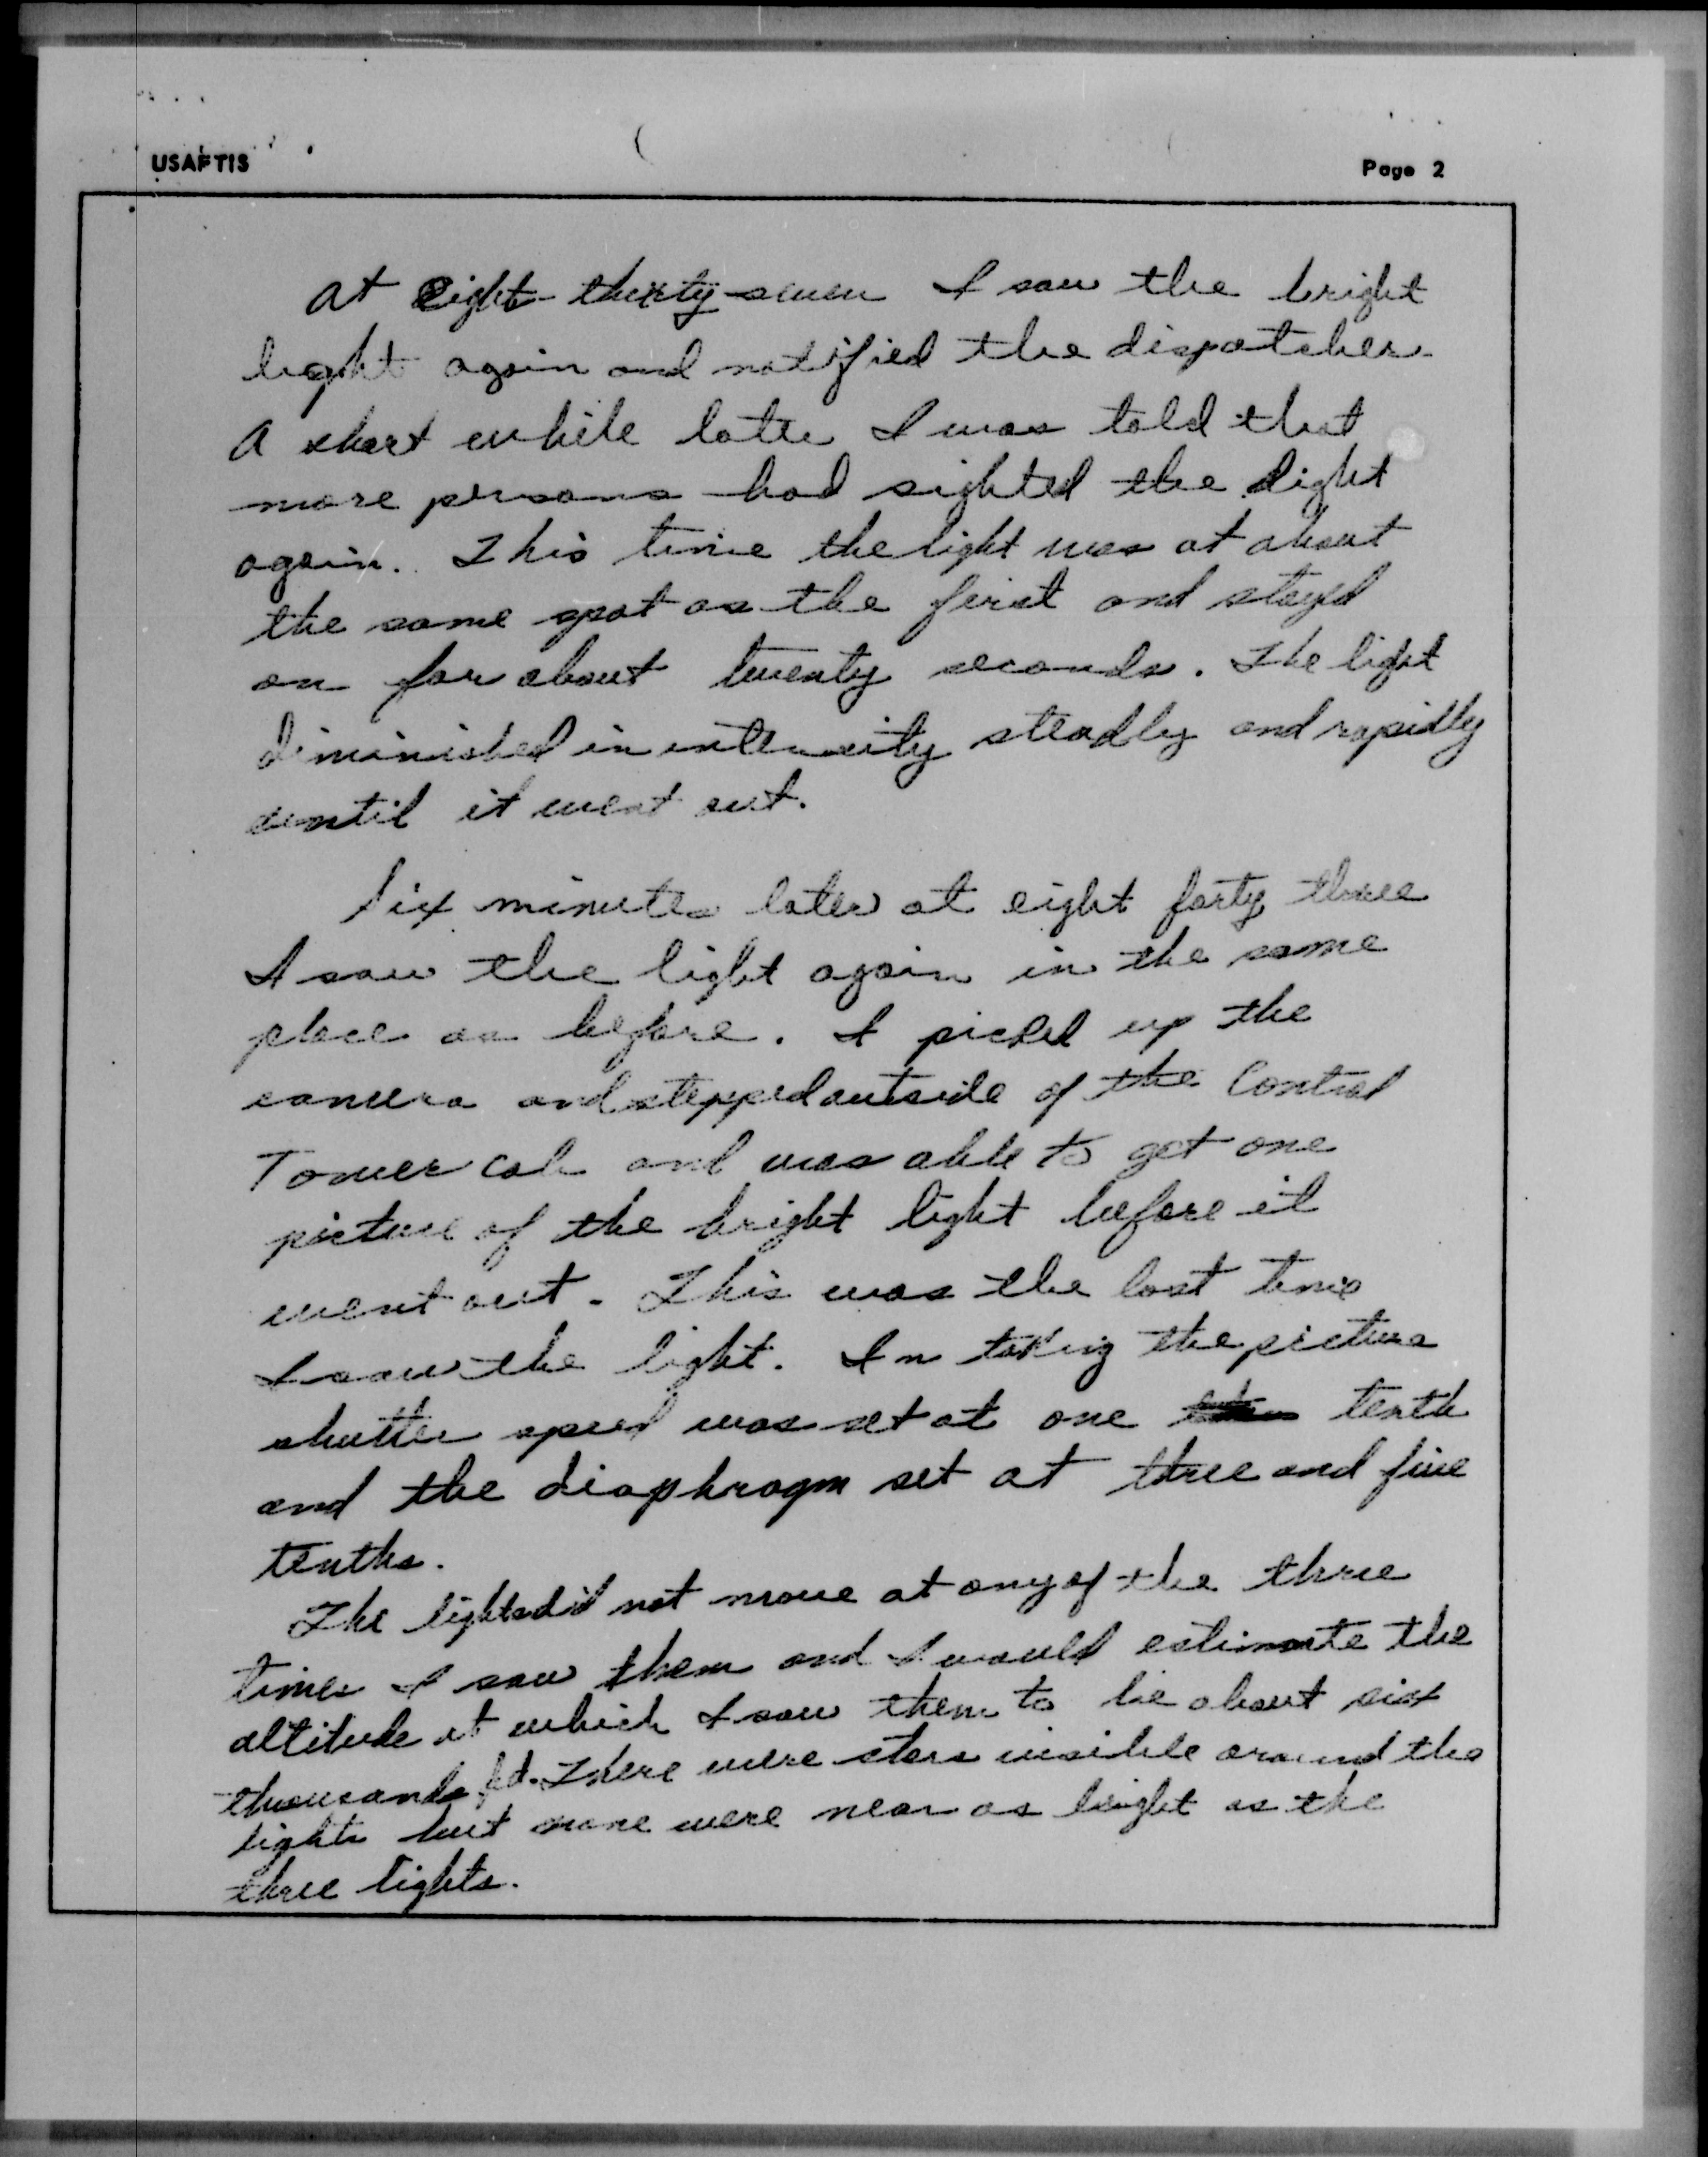 USAFTIS
Page 2
At eight-thirty-seven I saw the bright
light again and notified the dispatcher.
A short while later I was told that
more persons had sighted the light
again. This time the light was at about
the same spot as the first and stayed
on for about twenty seconds. The light
diminished in intensity steadly and rapidly
until it went out.
Six minutes later at eight forty three
I saw the light again in the same
place as before. I picked up the
camera and stepped outside of the Control
Tower cab and was able to get one
picture of the bright light before it
went out. This was the last time
I saw the light. In taking the picture
shutter speed was set at one tenth
and the diaphragm set at three and five
tenths.
The lights did not move at any of the three
times I saw them and I would estimate the
altitude at which I saw them to be about six
thousands ft. There were stars visible around the
lights but none were near as bright as the
three lights.